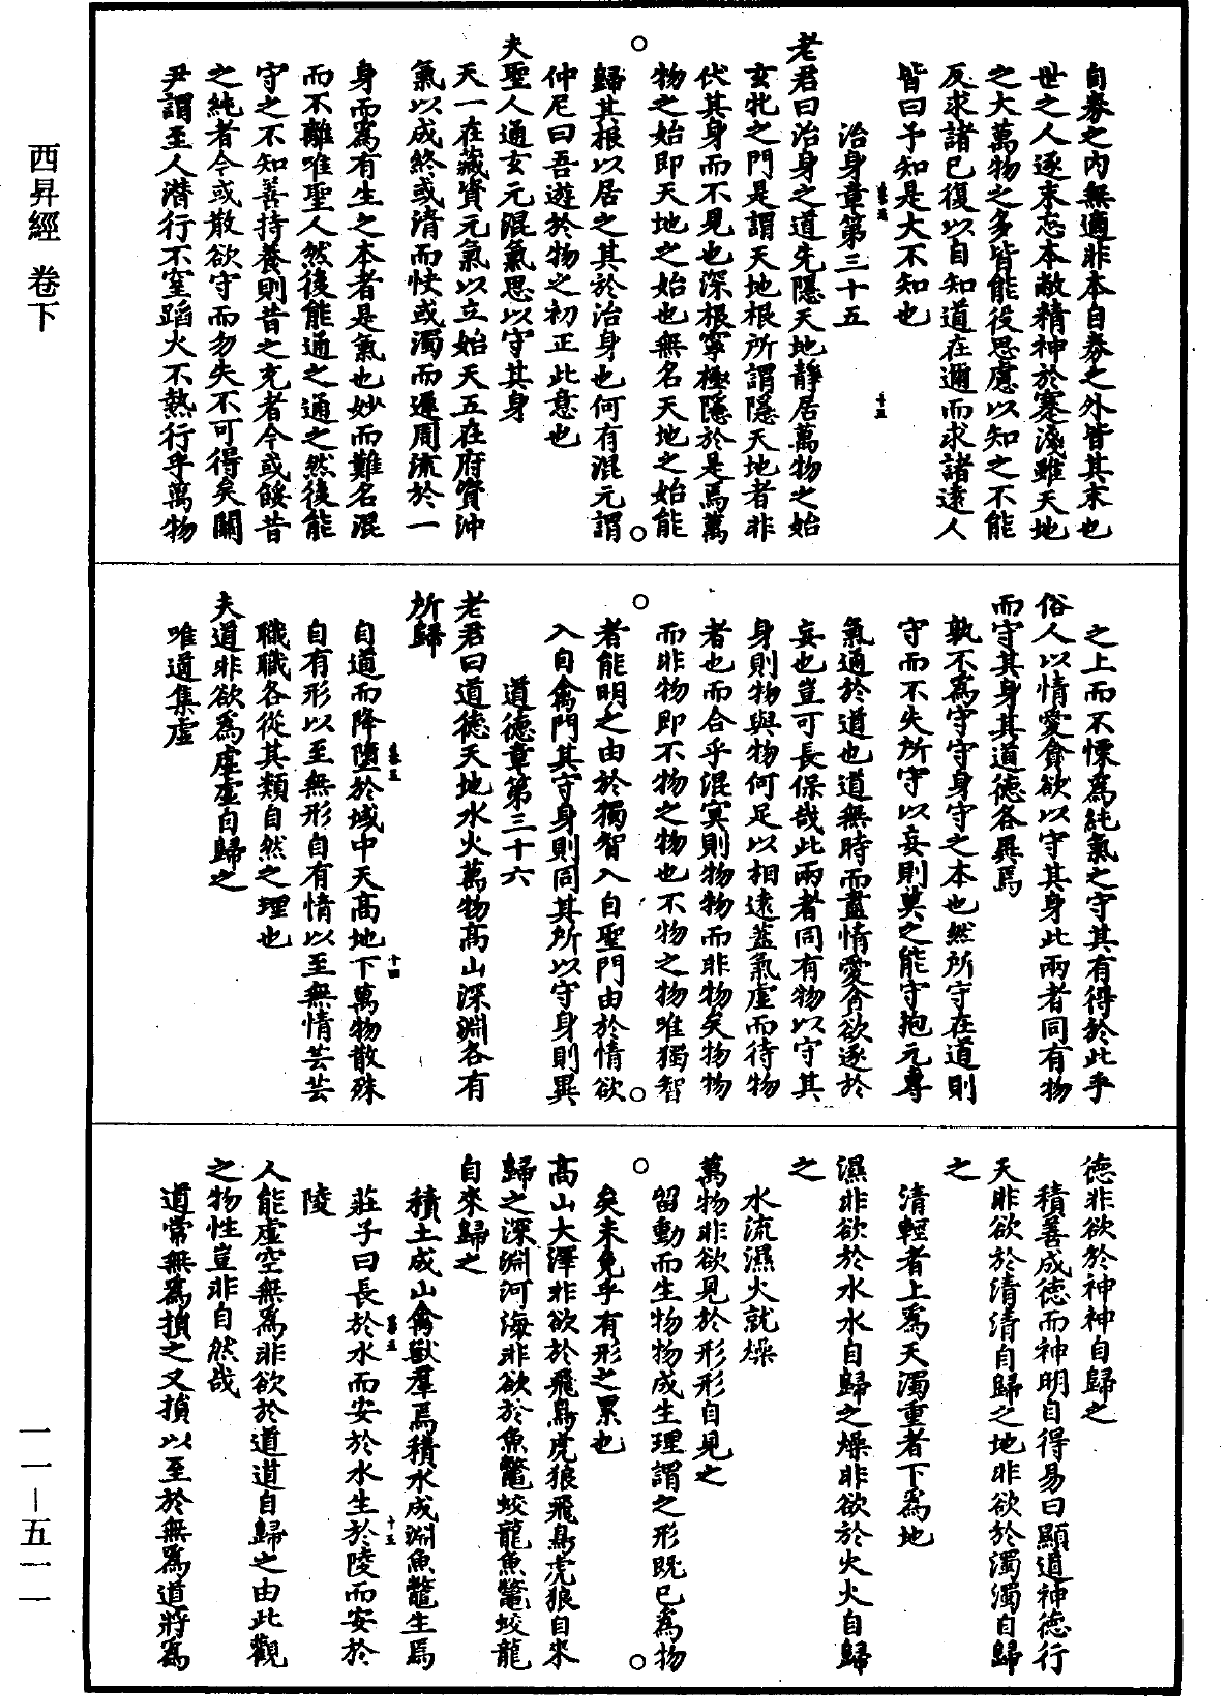 西昇經 卷下
自券之內無適非本自券之外皆其末也
世之人逐末忘本敝精神於蹇淺雖天地
之大萬物之多皆能役思慮以知之不能
反求諸已復以自知道在邇而求諸遠人
皆曰予知是大不知也
治身章第三十五
老君曰治身之道先隱天地靜居萬物之始
玄牝之門是謂天地根所謂隱天地者非
伏其身而不見也深根寧極隱於是焉萬
物之始即天地之始也無名天地之始能
歸其根以居之其於治身也何有混元謂
仲尼曰吾遊於物之初正此意也
夫聖人通玄元混氣思以守其身
天一在藏資元氣以立始天五在府資沖
氣以成終或清而快或濁而遲周流於一
身而爲有生之本者是氣也妙而難名混
而不離唯聖人然後能通之通之然後能
守之不知善持養則昔之充者今或餒昔
之純者今或散欲守而勿失不可得矣關
尹謂至人潛行不窒蹈火不熱行乎萬物
之上而不慄爲純氣之守其有得於此乎
俗人以情愛貪欲以守其身此兩者同有物
而守其身其道德各異焉
孰不爲守守身守之本也然所守在道則
守而不失所守以妄則莫之能守抱元專
氣適於道也道無時而盡情愛貪欲逐於
妄也豈可長保哉此兩者同有物以守其
身則物與物何足以相遠蓋氣虛而待物
者也而合乎混冥則物物而非物矣物物
而非物即不物之物也不物之物唯獨智
者能明之由於獨智入自聖門由於情欲
入自禽門其守身則同其所以守身則異
道德章第三十六
老君曰道德天地水火萬物高山深淵各有
所歸
自道而降墮於域中天高地下萬物散殊
自有形以至無形自有情以至無情芸芸
職職各從其類自然之理也
夫道非欲爲虛虛自歸之
唯道集虛
德非欲於神神自歸之
積善成德而神明自得易曰顯道神德行
天非欲於清清自歸之地非欲於濁濁自歸
之
清輕者上爲天濁重者下爲地
濕非欲於水水自歸之燥非欲於火火自歸
之
水流濕火就燥
萬物非欲見於形形自見之
留動而生物物成生理謂之形既已爲物
矣未免乎有形之累也
高山大澤非欲於飛鳥虎狼飛鳥虎狼自來
歸之深淵河海非欲於魚鼈蛟龍魚鼈蛟龍
自來歸之
積土成山禽獸羣焉積水成淵魚鼈生焉
莊子曰長於水而安於水生於陵而安於
陵
人能虛空無爲非欲於道道自歸之由此觀
之物性豈非自然哉
道常無爲損之又損以至於無爲道將爲
一一—五一一